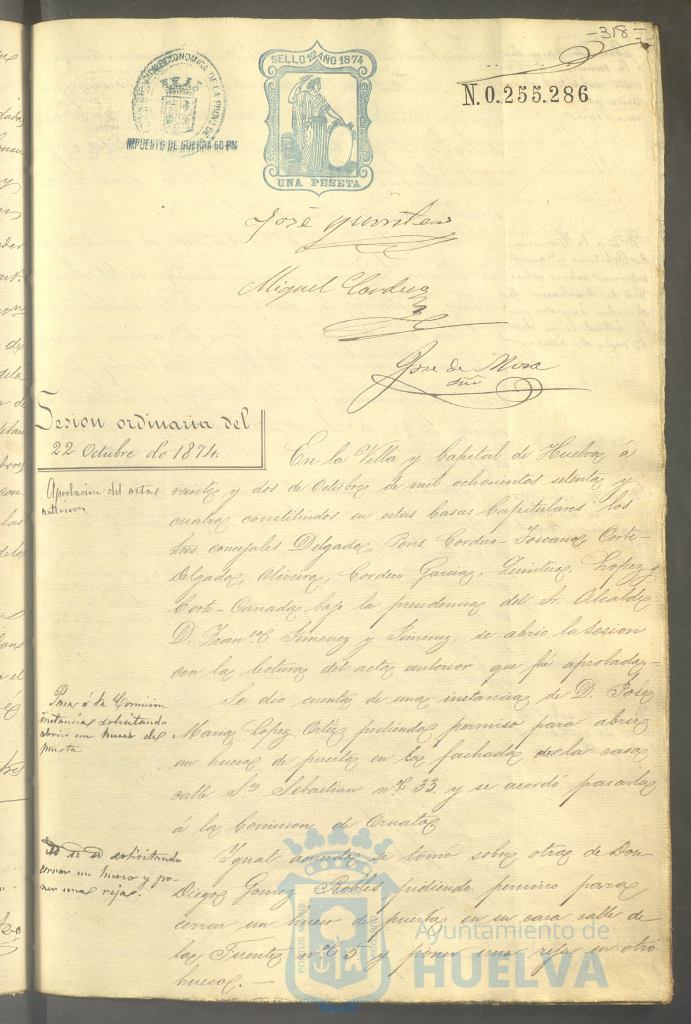 -318-
SELLO 10º AÑO 1874
UNA PESETA
ECONOMICA DE LA PROV. DE
IMPUESTO DE GUERRA 50 PS
N. 0.255.286
José Quintero
Miguel Cordero
José de Mora
Srio
Sesion ordinaria del
22 Octubre de 1874.
Aprobacion del acta
anterior
En la Villa y Capital de Huelva á
veinte y dos de Octubre de mil ochocientos setenta y
cuatro constituidos en estas Casas Capitulares los
Sres concejales Delgado, Pons, Cordero-Toscano, Corte-
Delgado, Oliveira, Cordero Garcia, Quintero, Lopez y
Corte-Canada bajo la presidencia del Sr. Alcalde
D. Franco Jimenez y Jimenez, se abrió la sesion
con la lectura del acta anterior que fué aprobada.
Pasa á la Comision
instancia solicitando
abrir un hueco de
puerta
Se dio cuenta de una instancia de D. José
Maria Lopez Ortiz pidiendo permiso para abrir
un hueco de puerta en la fachada de la casa
calle Sn Sebastian nº 33 y se acordó pasarla
á la Comision de Ornato
id id id solicitando
cerrar un hueco y po-
ner una reja.
Igual acuerdo se tomó sobre otra de Don
Diego Gomez Robles pidiendo permiso para
cerrar un hueco de puerta en su casa calle de
la Fuente nº 5 y poner una reja en otro
hueco.
PORTUS MARIS
Ayuntamiento de
HUELVA